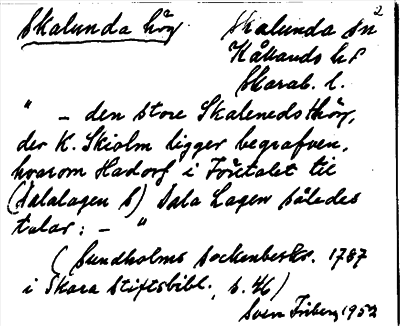 2
Skalunda hög. Skalunda sn
Kållands hd
Skarab. l.
" – den store Skalunedshög,
der K. Skiolm ligger begrafven,
hvarom Hadorf i Företalet til
(Dalalagen S) Dala Lagen således
talar: – "
(Sundholms Sockenbeskr. 1787
i Skara Stiftsbibl., s. 46)
Sven Friberg 1952